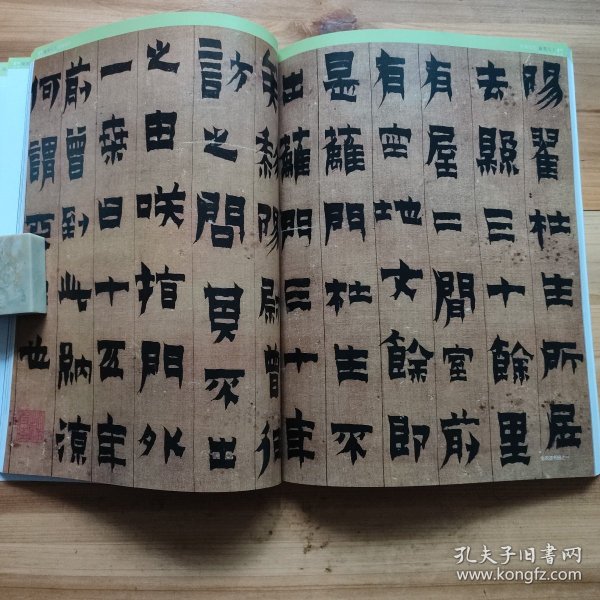 陽翟杜生所居
去縣三十餘里
有屋二間室前
有空地丈餘即
是籬門杜生不
出籬門三十年
矣黎陽尉曾往
訪之問其不出
之由咲指門外
一桒日十五年
前曾到此納涼
何謂
也
孔夫子旧書网
www.kongfz.com